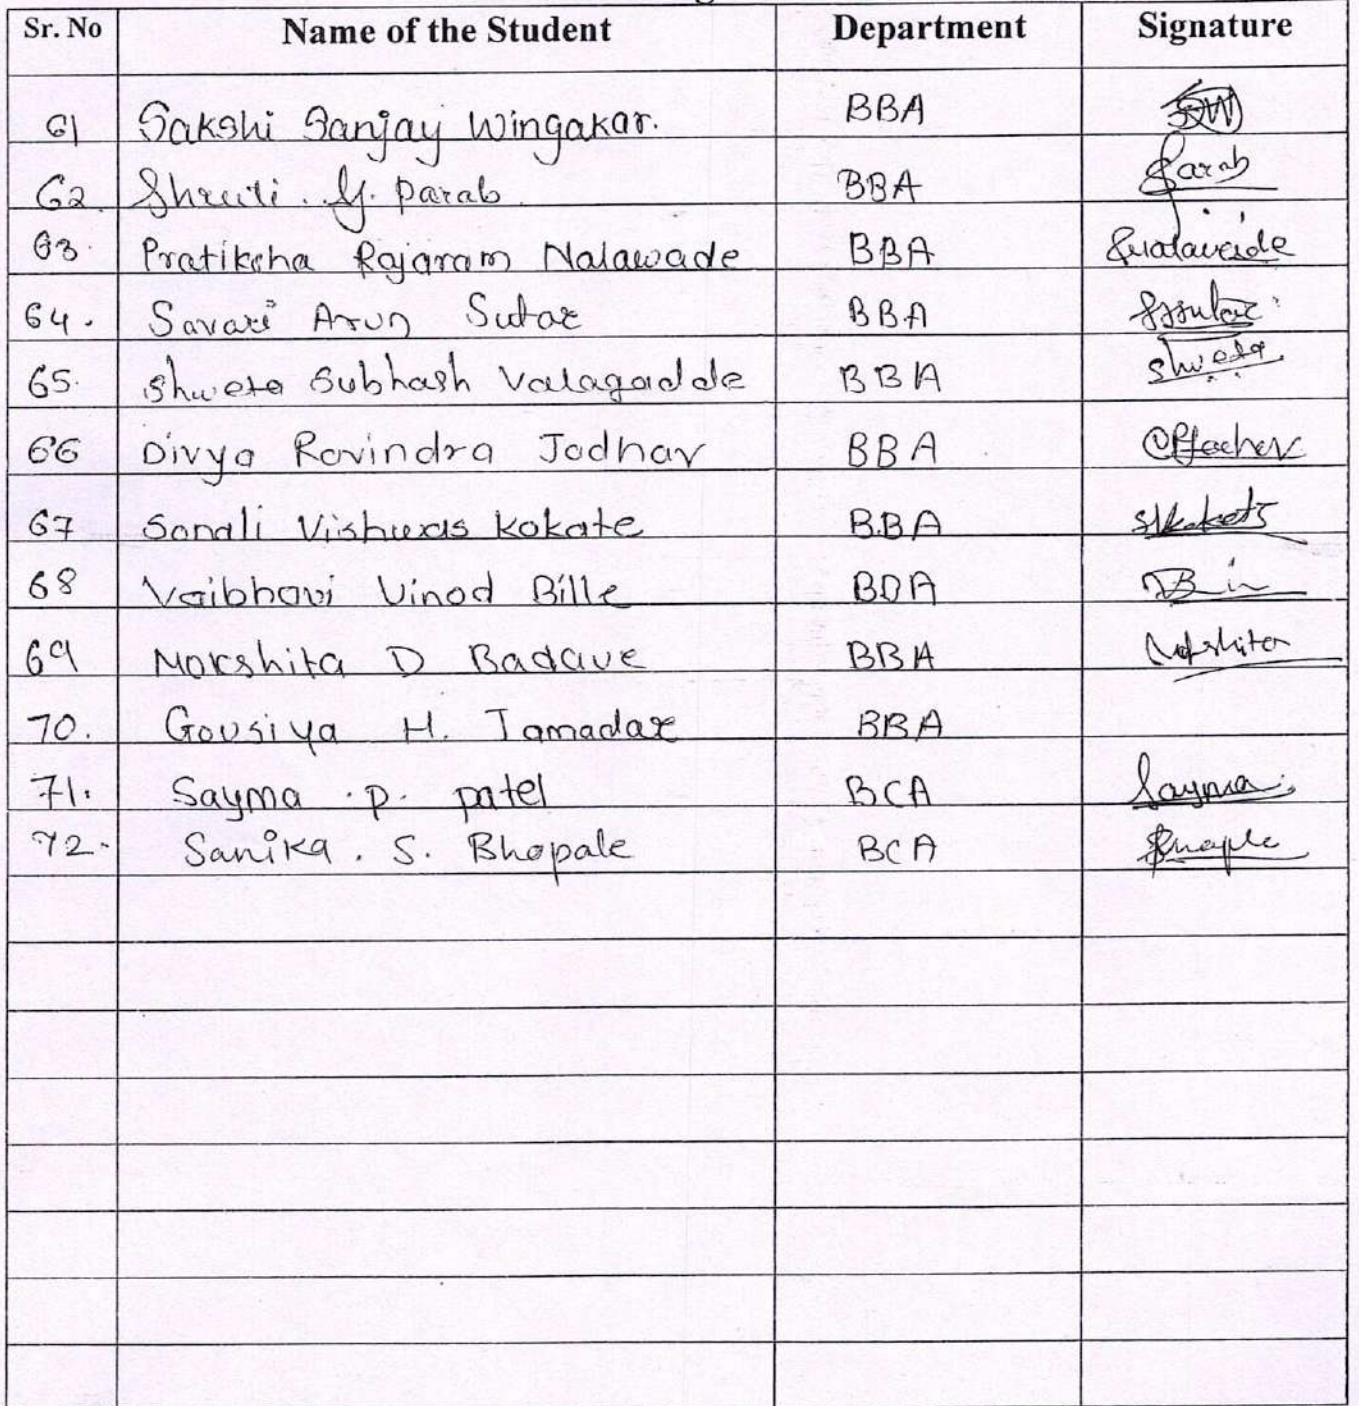 Sr. No Name of the Student Department Signature
61 Sakshi Sanjay Wingakar. BBA SW
62. Shruti . Y. Parab BBA Parab
63. Pratiksha Rajaram Nalawade BBA
64. Savari Arun Sutar BBA
65. Shweta Subhash Valagadde BBA Shweta
66 Divya Ravindra Jadhav BBA
67 Sonali Vishwas Kokate B.BA
68 Vaibhavi Vinod Bille BBA
69 Mokshita D Badave BBA Mokshita
70. Gousiya H. Jamadar BBA
71. Sayma . P. patel BCA Sayma
72. Sanika . S. Bhopale BCA